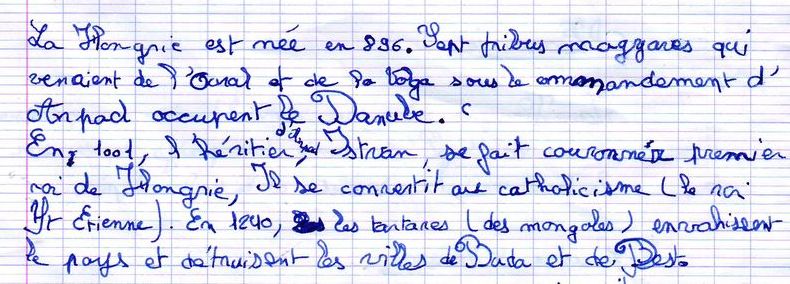 La Hongrie est née en 896. Sept tribus maggares qui
venaient de l'Oural et de la Volga sous le commandement d'
Arpad occupent le Danube.
En 1001, l'héritier d'Arpad, Istvan, se fait couronner premier
roi de Hongrie, Il se convertit au catholicisme (le roi
St Etienne). En 1240, les tartares (des mongoles) envahissent
le pays et détruisent les villes de Buda et de Pest.